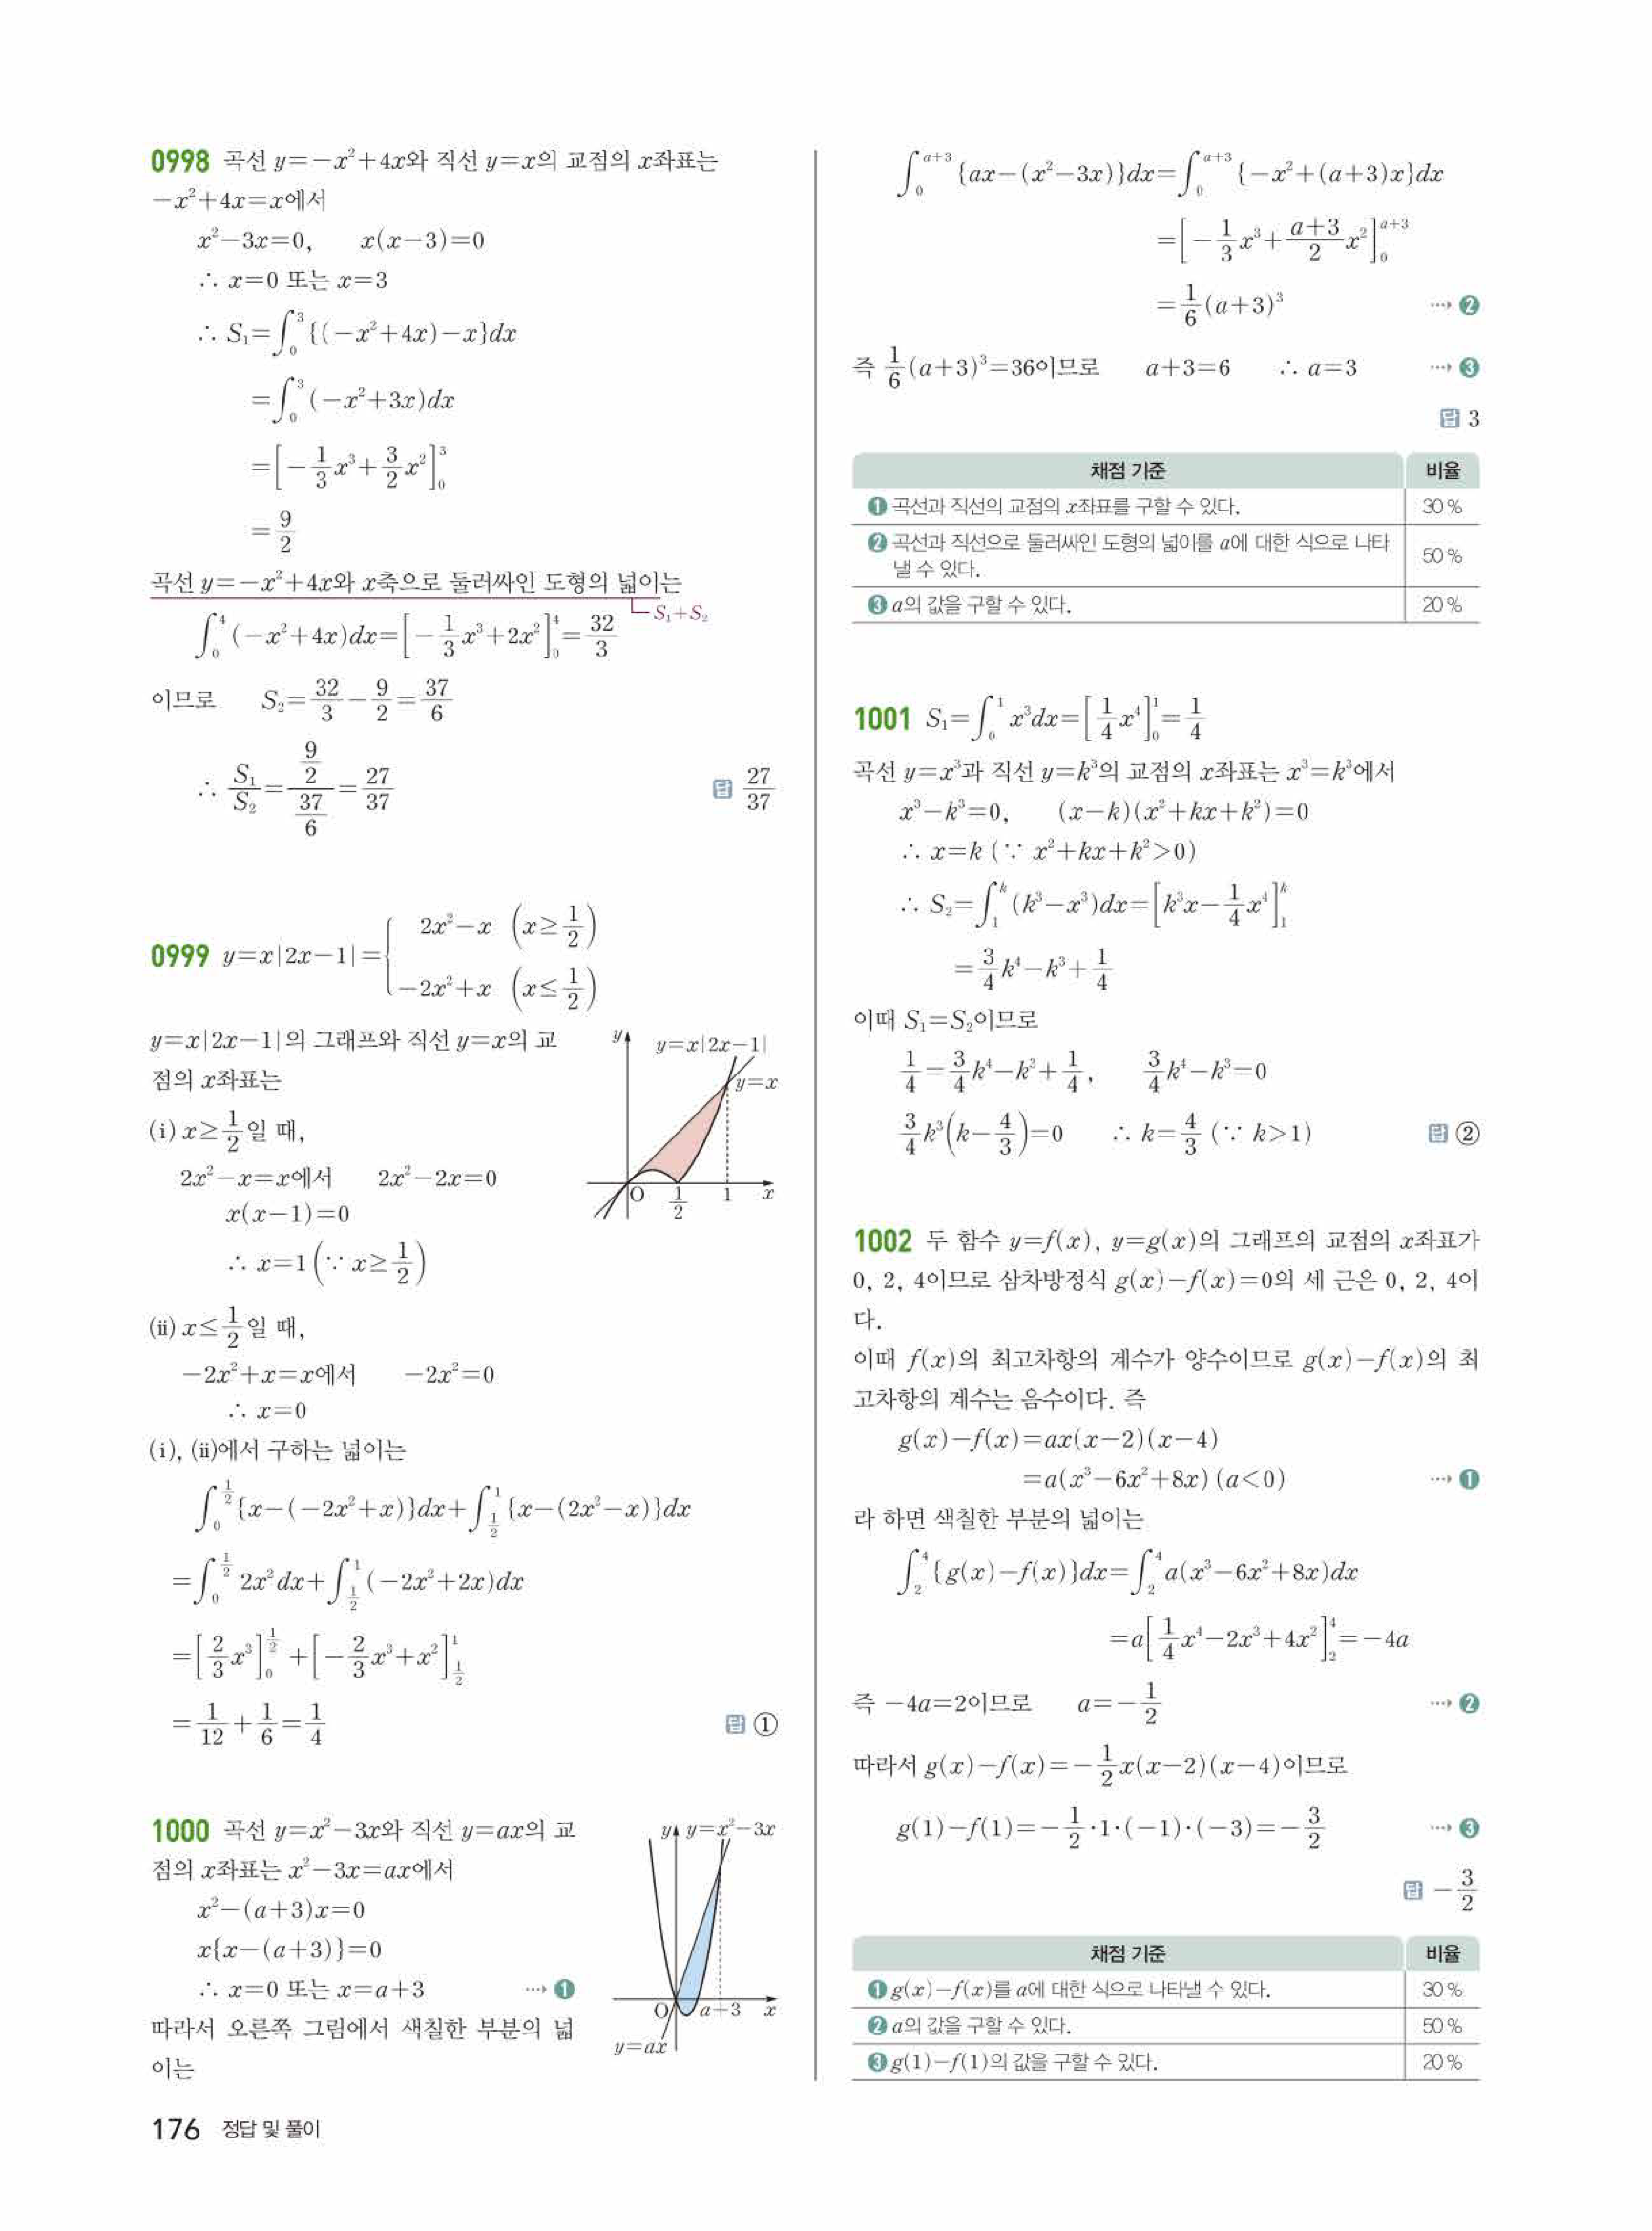 0998 곡선 y=-x²+4x와 직선 y=x의 교점의 x좌표는
-x²+4x=x에서
x²-3x=0, x(x-3)=0
∴ x=0 또는 x=3
∴ S₁=∫₀³{(-x²+4x)-x}dx
=∫₀³(-x²+3x)dx
=[-1/3x³+3/2x²]₀³
=9/2
곡선 y=-x²+4x와 x축으로 둘러싸인 도형의 넓이는
S₁+S₂
∫₀⁴(-x²+4x)dx=[-1/3x³+2x²]₀⁴=32/3
이므로 S₂=32/3-9/2=37/6
∴ S₁/S₂=(9/2)/(37/6)=27/37 답 27/37
0999 y=x|2x-1|={ 2x²-x (x≥1/2)
-2x²+x (x≤1/2)
y=x|2x-1|의 그래프와 직선 y=x의 교
점의 x좌표는
(i) x≥1/2일 때,
2x²-x=x에서 2x²-2x=0
x(x-1)=0
∴ x=1(∵ x≥1/2)
(ii) x≤1/2일 때,
-2x²+x=x에서 -2x²=0
∴ x=0
y y=x|2x-1|
y=x
O 1/2 1 x
(i), (ii)에서 구하는 넓이는
∫₀^(1/2){x-(-2x²+x)}dx+∫_(1/2)^1{x-(2x²-x)}dx
=∫₀^(1/2) 2x²dx+∫_(1/2)^1(-2x²+2x)dx
=[2/3x³]₀^(1/2)+[-2/3x³+x²]_(1/2)^1
=1/12+1/6=1/4 답 ①
1000 곡선 y=x²-3x와 직선 y=ax의 교
점의 x좌표는 x²-3x=ax에서
x²-(a+3)x=0
x{x-(a+3)}=0
∴ x=0 또는 x=a+3 ⋯➜ ❶
따라서 오른쪽 그림에서 색칠한 부분의 넓
이는
y y=x²-3x
O a+3 x
y=ax
∫₀^(a+3){ax-(x²-3x)}dx=∫₀^(a+3){-x²+(a+3)x}dx
=[-1/3x³+(a+3)/2x²]₀^(a+3)
=1/6(a+3)³ ⋯➜ ❷
즉 1/6(a+3)³=36이므로 a+3=6 ∴ a=3 ⋯➜ ❸
답 3
채점 기준 비율
❶ 곡선과 직선의 교점의 x좌표를 구할 수 있다. 30%
❷ 곡선과 직선으로 둘러싸인 도형의 넓이를 a에 대한 식으로 나타
낼 수 있다. 50%
❸ a의 값을 구할 수 있다. 20%
1001 S₁=∫₀¹x³dx=[1/4x⁴]₀¹=1/4
곡선 y=x³과 직선 y=k³의 교점의 x좌표는 x³=k³에서
x³-k³=0, (x-k)(x²+kx+k²)=0
∴ x=k (∵ x²+kx+k²>0)
∴ S₂=∫₁ᵏ(k³-x³)dx=[k³x-1/4x⁴]₁ᵏ
=3/4k⁴-k³+1/4
이때 S₁=S₂이므로
1/4=3/4k⁴-k³+1/4, 3/4k⁴-k³=0
3/4k³(k-4/3)=0 ∴ k=4/3 (∵ k>1) 답 ②
1002 두 함수 y=f(x), y=g(x)의 그래프의 교점의 x좌표가
0, 2, 4이므로 삼차방정식 g(x)-f(x)=0의 세 근은 0, 2, 4이
다.
이때 f(x)의 최고차항의 계수가 양수이므로 g(x)-f(x)의 최
고차항의 계수는 음수이다. 즉
g(x)-f(x)=ax(x-2)(x-4)
=a(x³-6x²+8x) (a<0) ⋯➜ ❶
라 하면 색칠한 부분의 넓이는
∫₂⁴{g(x)-f(x)}dx=∫₂⁴a(x³-6x²+8x)dx
=a[1/4x⁴-2x³+4x²]₂⁴=-4a
즉 -4a=2이므로 a=-1/2 ⋯➜ ❷
따라서 g(x)-f(x)=-1/2x(x-2)(x-4)이므로
g(1)-f(1)=-1/2·1·(-1)·(-3)=-3/2 ⋯➜ ❸
답 -3/2
채점 기준 비율
❶ g(x)-f(x)를 a에 대한 식으로 나타낼 수 있다. 30%
❷ a의 값을 구할 수 있다. 50%
❸ g(1)-f(1)의 값을 구할 수 있다. 20%
176 정답 및 풀이